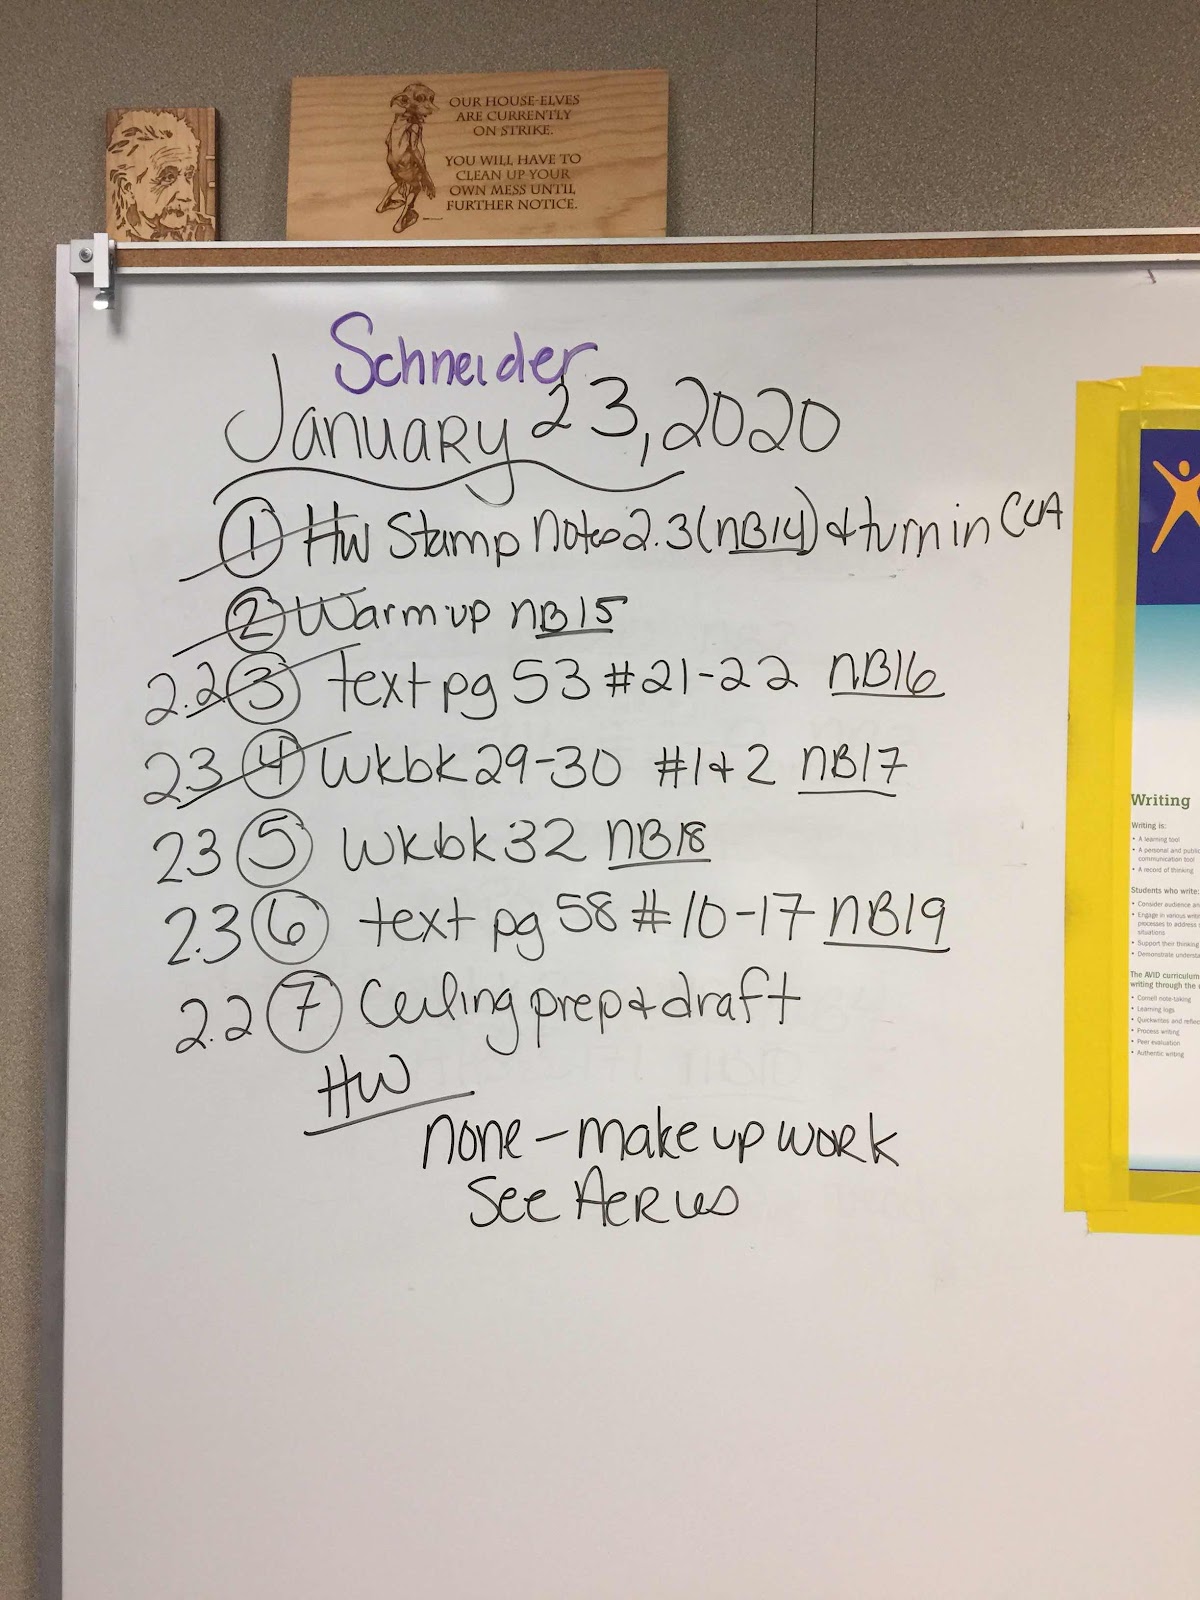 OUR HOUSE-ELVES
ARE CURRENTLY
ON STRIKE.
YOU WILL HAVE TO
CLEAN UP YOUR
OWN MESS UNTIL
FURTHER NOTICE.
Schneider
January 23, 2020
1 HW Stamp Notes 2.3 (NB14) & turn in CUA
2 Warm up NB15
2.2 3 text pg 53 #21-22 NB16
2.3 4 Wkbk 29-30 #1 & 2 NB17
2.3 5 Wkbk 32 NB18
2.3 6 text pg 58 #10-17 NB19
2.2 7 Ceiling prep & draft
HW
none - make up work
See Aeries
Writing
Writing is:
• A learning tool
• A personal and public
communication tool
• A record of thinking
Students who write:
• Consider audience an
• Engage in various writi
processes to address s
situations
• Support their thinking
• Demonstrate understa
The AVID curriculum
writing through the
• Cornell note-taking
• Learning logs
• Quickwrites and reflec
• Process writing
• Peer evaluation
• Authentic writing